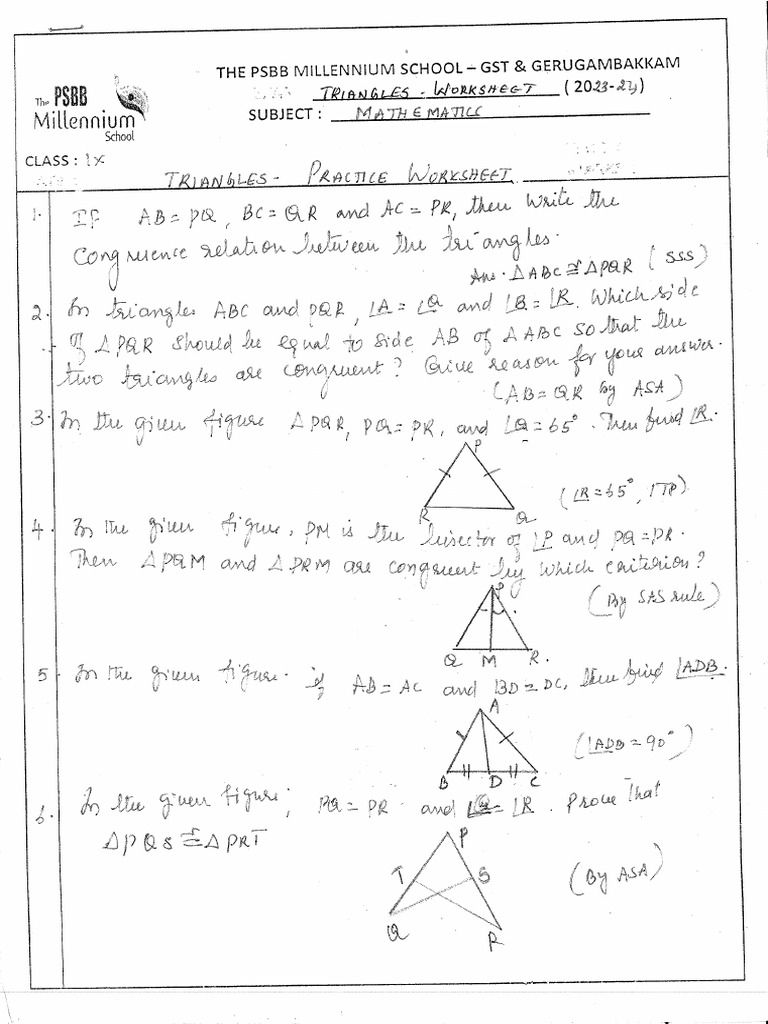 THE PSBB MILLENNIUM SCHOOL – GST & GERUGAMBAKKAM
The PSBB Millennium School
TRIANGLES - WORKSHEET (2023-24)
SUBJECT : MATHEMATICS
CLASS : IX
TRIANGLES - PRACTICE WORKSHEET
1. If AB = PQ, BC = QR and AC = PR, then write the
congruence relation between the triangles.
Ans. △ABC ≅ △PQR (SSS)
2. In triangles ABC and PQR, ∠A = ∠Q and ∠B = ∠R. Which side
of △PQR should be equal to side AB of △ABC so that the
two triangles are congruent? Give reason for your answer.
(AB = QR by ASA)
3. In the given figure △PQR, PQ = PR, and ∠Q = 65°. Then find ∠R.
P
(∠R = 65°, ITP)
R Q
4. In the given figure, PM is the bisector of ∠P and PQ = PR.
Then △PQM and △PRM are congruent by which criterion?
P
(By SAS rule)
Q M R.
5. In the given figure. if AB = AC and BD = DC, then find ∠ADB.
A
(∠ADB = 90°)
B D C
6. In the given figure; PQ = PR and ∠Q = ∠R. Prove that
△PQS ≅ △PRT
P
T S
(By ASA)
Q
R